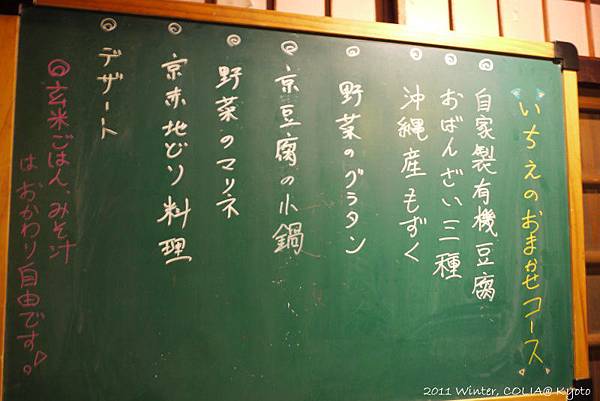 いちえのおまかせコース
◎ 自家製有機豆腐
◎ おばんざい三種
◎ 沖縄産もずく
◎ 野菜のグラタン
◎ 京豆腐の小鍋
◎ 野菜のマリネ
◎ 京赤地どり料理
◎ デザート
◎玄米ごはん、みそ汁
はおかわり自由です。♪
2011 Winter, COLIA@Kyoto